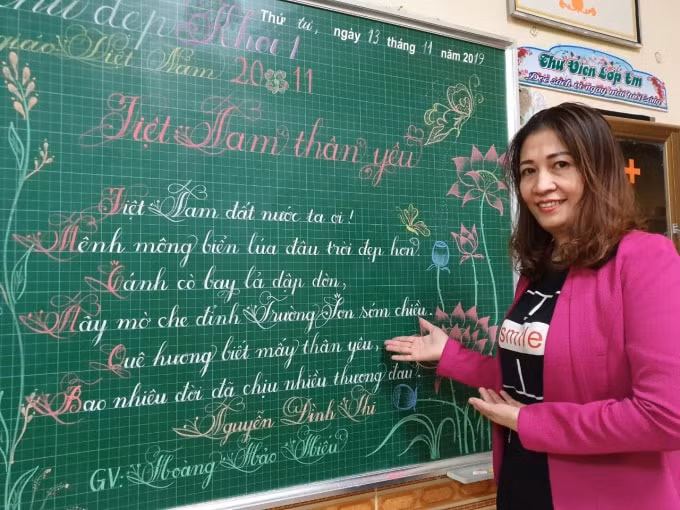 Thứ tư, ngày 13 tháng 11 năm 2019
đẹp Khối 1
giáo Việt Nam
20 11
Việt Nam thân yêu
Việt Nam đất nước ta ơi!
Mênh mông biển lúa đâu trời đẹp hơn.
Cánh cò bay lả dập dờn,
Mây mờ che đỉnh Trường Sơn sớm chiều.
Quê hương biết mấy thân yêu,
Bao nhiêu đời đã chịu nhiều thương đau!
Nguyễn Đình Thi
GV: Hoàng
Thư Viện Lớp Em
smile